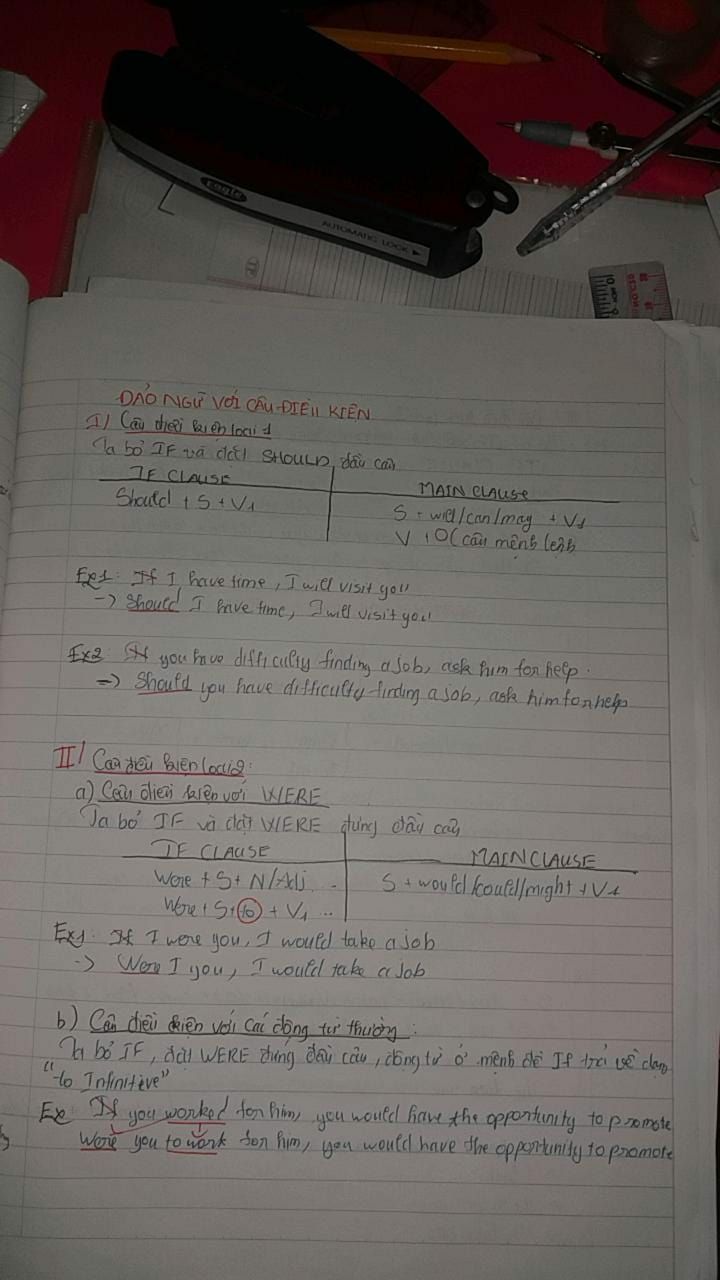 Eagle
AUTOMATIC LOCK
ĐẢO NGỮ VỚI CÂU ĐIỀU KIỆN
I/ Câu điều kiện loại 1
Ta bỏ IF và đặt SHOULD đầu câu
IF CLAUSE
MAIN CLAUSE
Should + S + V1
S + will/can/may + V1
V + O (câu mệnh lệnh
Ex1: If I have time, I will visit you
-> Should I have time, I will visit you
Ex2: If you have difficulty finding a job, ask him for help.
-> Should you have difficulty finding a job, ask him for help
II/ Câu điều kiện loại 2:
a) Câu điều kiện với WERE
Ta bỏ IF và đặt WERE đứng đầu câu
IF CLAUSE
MAIN CLAUSE
Were + S + N/Adj ...
S + would/could/might + V1
Were + S + to + V1 ...
Ex1: If I were you, I would take a job
-> Were I you, I would take a job
b) Câu điều kiện với các động từ thường:
Ta bỏ IF, đặt WERE đứng đầu câu, động từ ở mệnh đề If trả về dạng
"to Infinitive"
Ex: If you worked for him, you would have the opportunity to promote
Were you to work for him, you would have the opportunity to promote